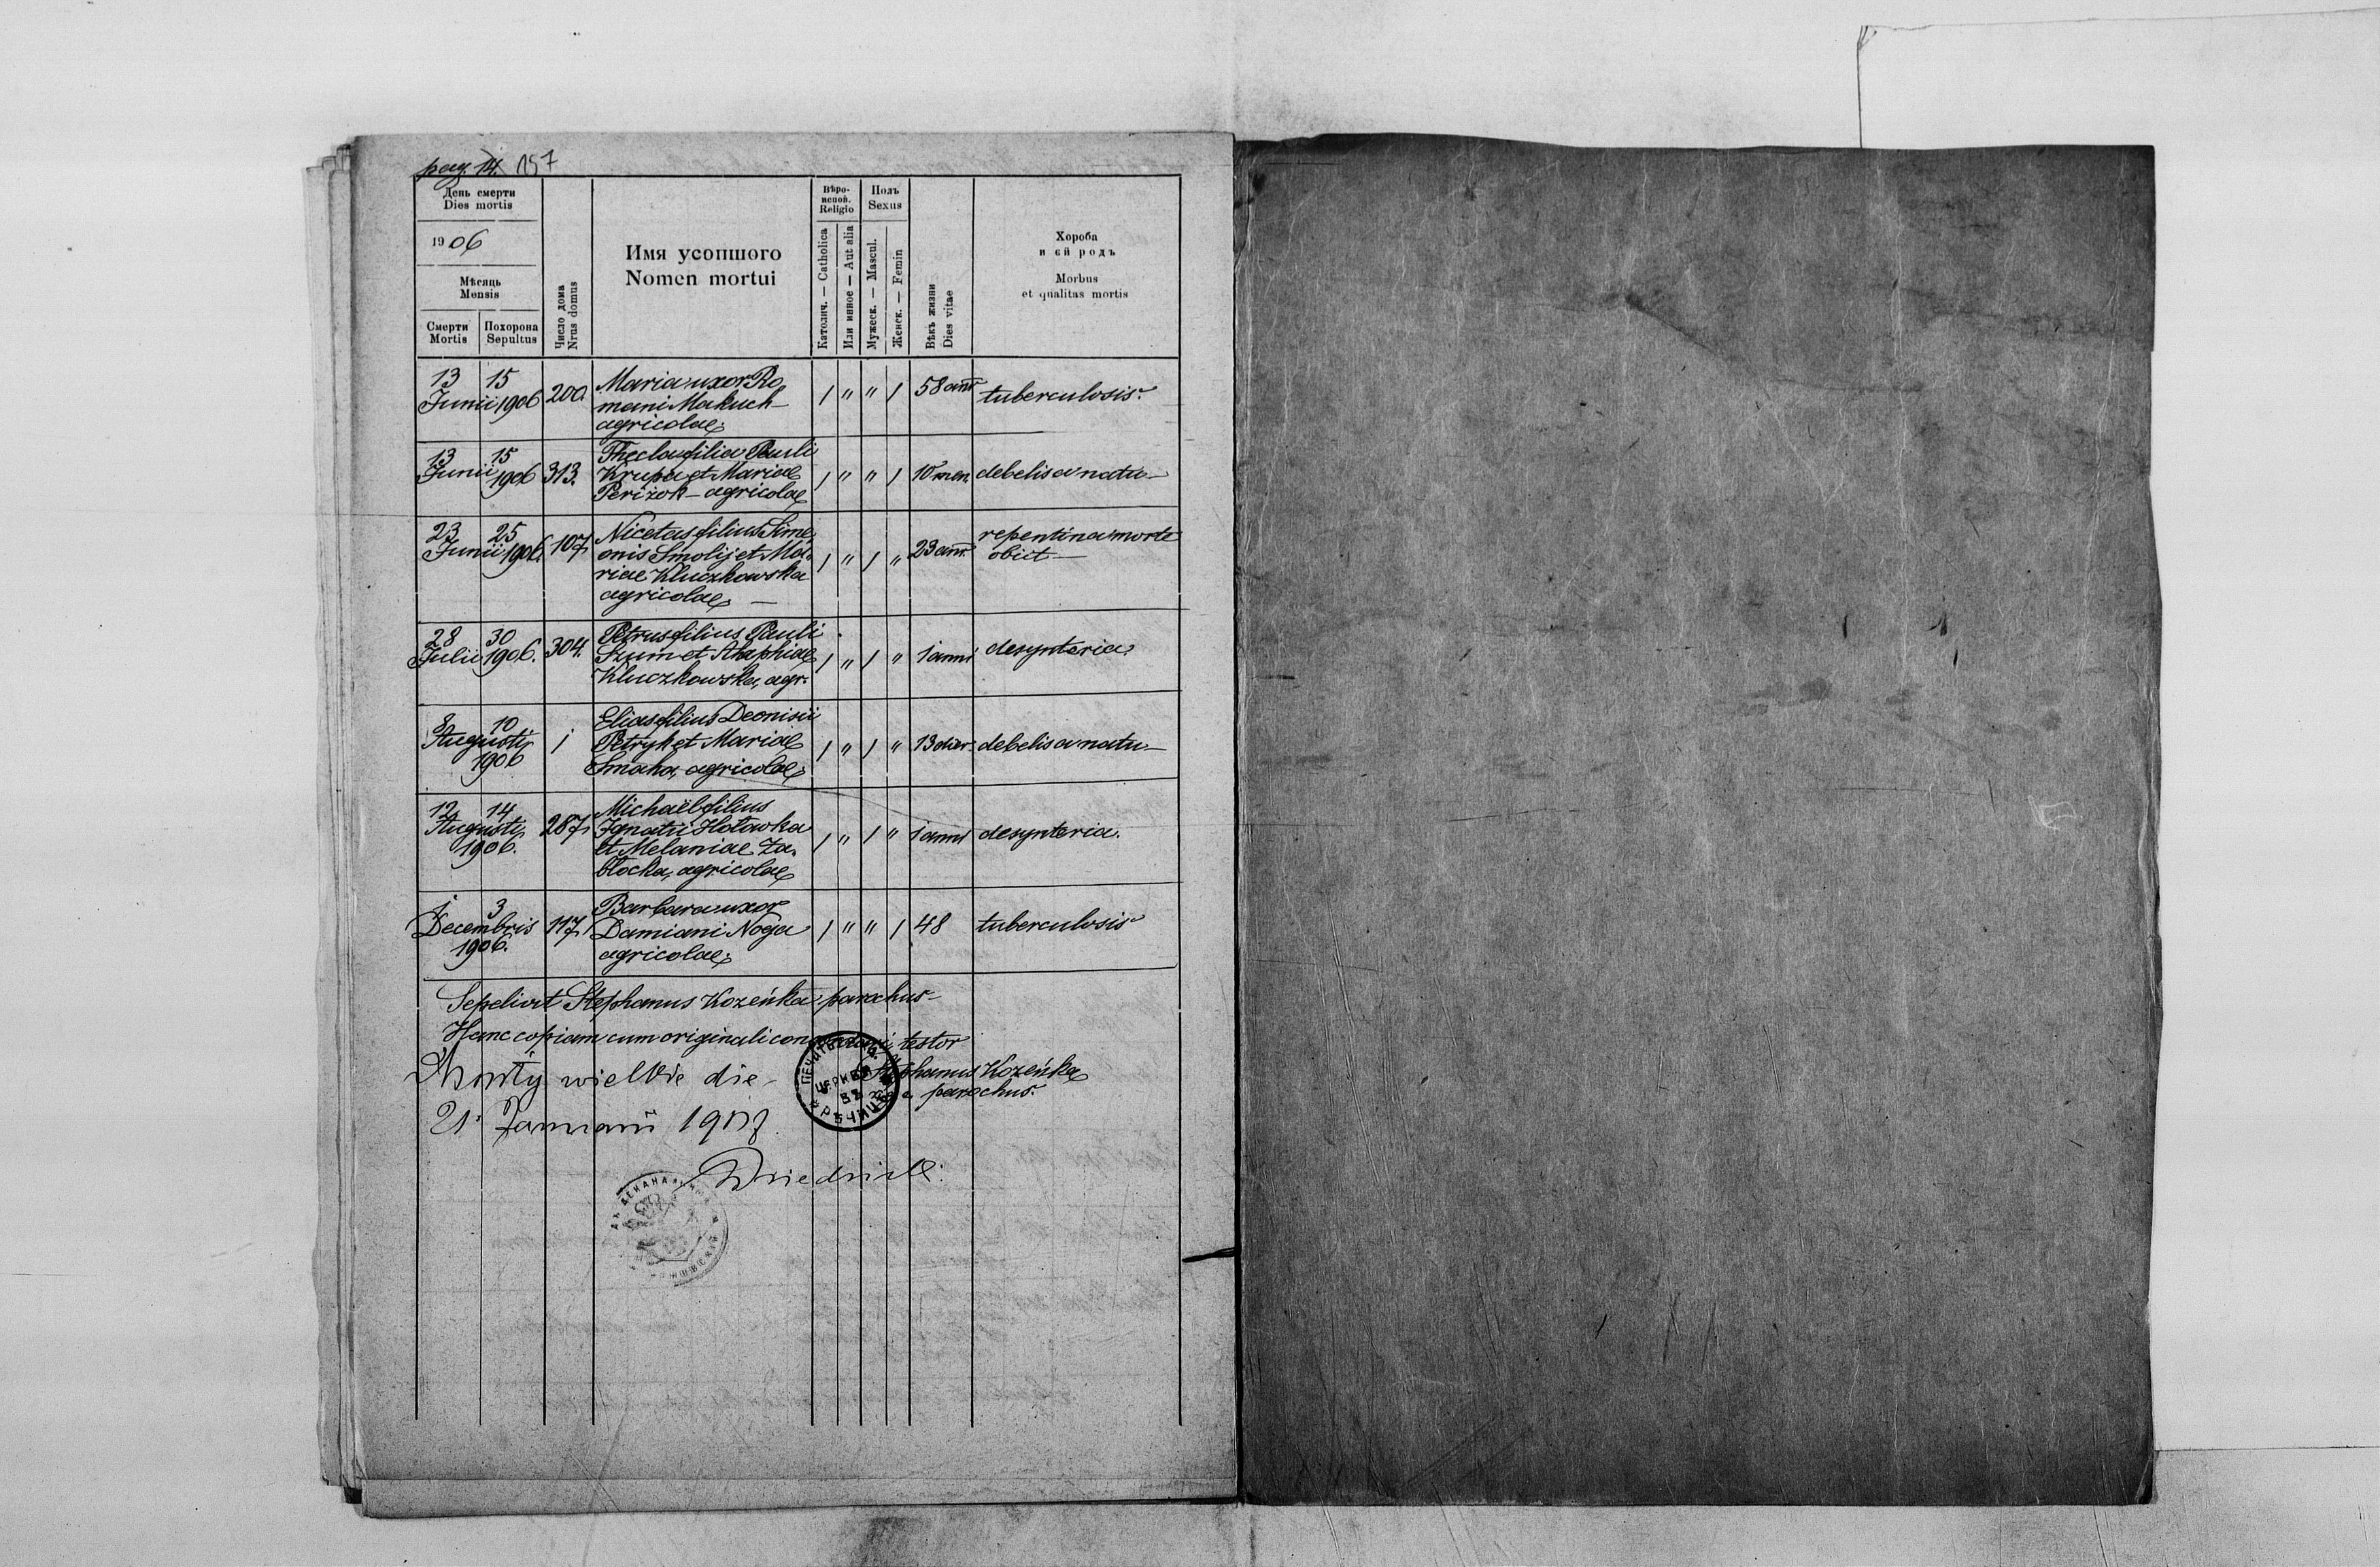 pag. 14. 157
День смерти
Dies mortis
1906
Мѣсяць
Mensis
Смерти
Mortis
Похорона
Sepultus
Число дома
Nrus domus
Имя усопшого
Nomen mortui
Вѣро-
испов.
Religio
Католич. — Catholica
Или инное — Aut alia
Полъ
Sexus
Мужеск. — Mascul.
Женск. — Femin
Вѣкъ жизни
Dies vitae
Хороба
и єй родъ
Morbus
et qualitas mortis
13 15 Junii 1906 200. Maria uxor Ro- / " " / 58 ann. tuberculosis.
mani Makuch
agricolae
13 15 Junii 1906 313. Thecla filia Pauli / " " / 10 men. debelis a natu
Krupa et Mariae
Perizok - agricolae
23 25 Junii 1906. 107 Nicetas filius Sime- / " / " 23 ann. repentina morte
onis Smolij et Ma- obiit
riae Kluczkowska
agricolae
28 30 Julii 1906. 304. Petrus filius Pauli / " / " 1 anni desynteria
Szum et Ahaphiae
Kluczkowska, agr.
8 10 Augusti 1906 1 Elias filius Deonisii / " / " 13 dier. debelis a natu
Petryk et Mariae
Smaha, agricolae
12 14 Augusti 1906. 287 Michaël filius / " / " 1 anni desynteria.
Ignatii Hotawka
et Melaniae Za-
błocka, agricolae
1 3 Decembris 1906. 117 Barbara uxor / " " / 48 tuberculosis
Damiani Noga
agricolae
Sepelivit Stephanus Kozeńka parochus
Hanc copiam cum originali testor
Stephanus Kozeńka
parochus.
Mosty wielkie die
21 Januarii 1907